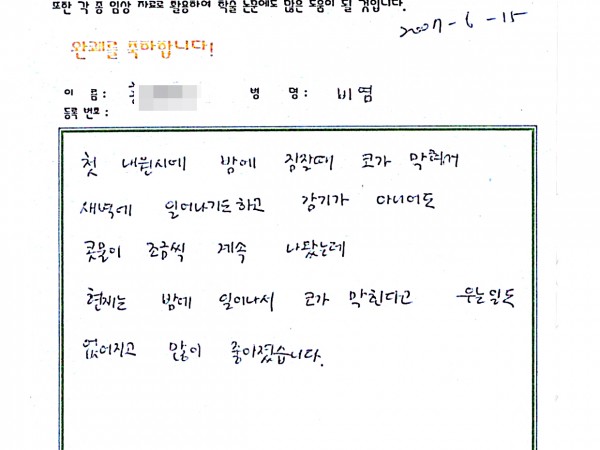 또한 각 종 임상 자료로 활용하여 학술 논문에도 많은 도움이 될 것입니다.
2007-6-15
완쾌를 축하합니다!
이 름 :
병 명 : 비염
등록 번호 :
첫 내원시에 밤에 잠잘때 코가 막혀서
새벽에 일어나기도하고 감기가 아니어도
콧물이 조금씩 계속 나왔는데
현재는 밤에 일어나서 코가 막힌다고 우는일도
없어지고 많이 좋아졌습니다.